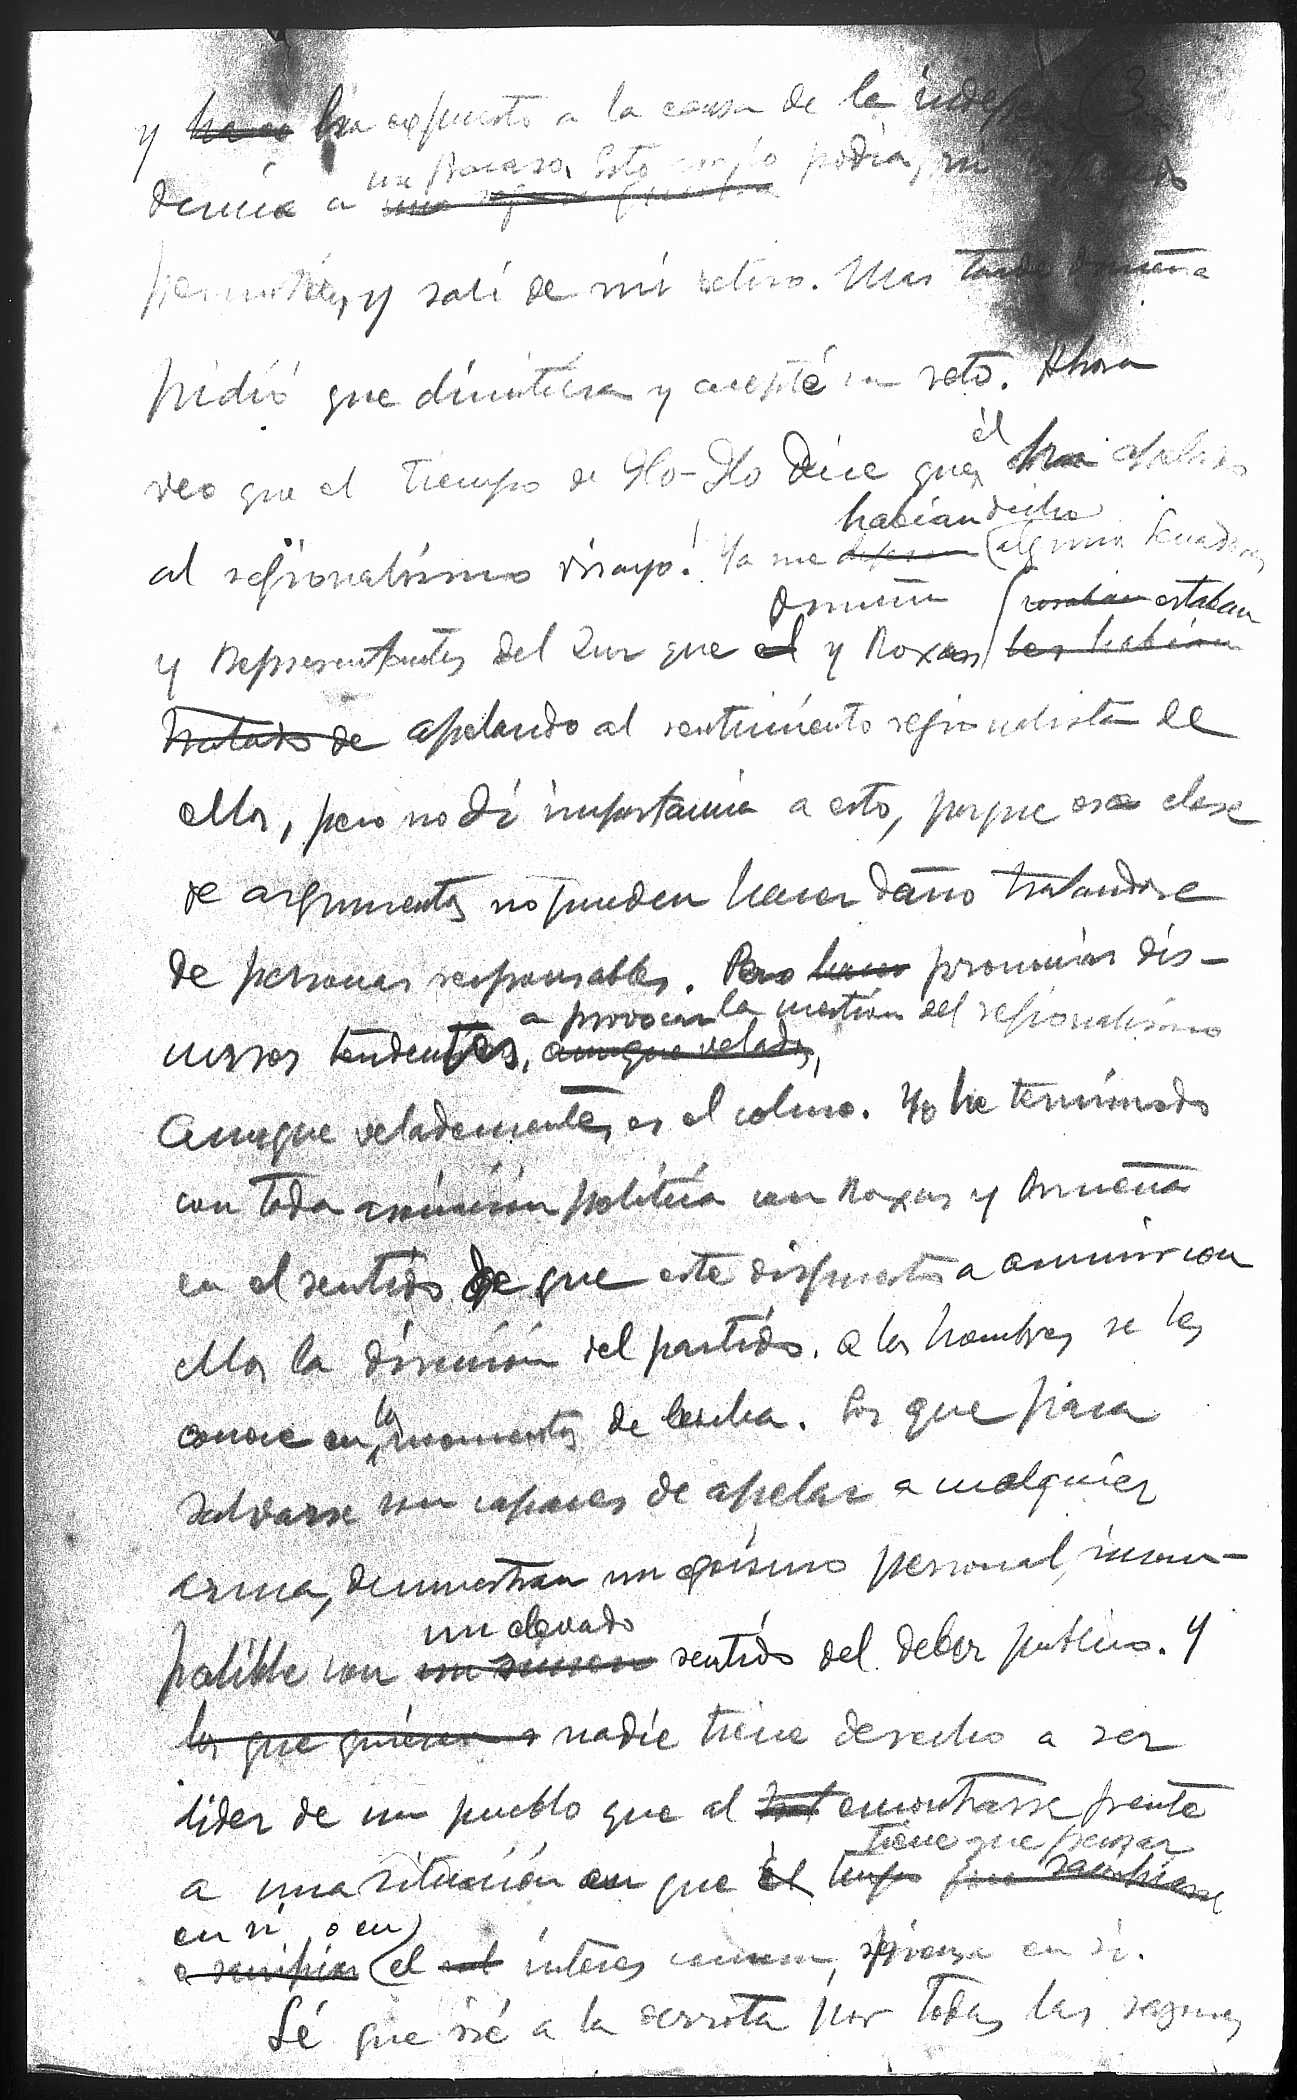 y ha expuesto a la causa de la indepen- 3
dencia a un fracaso. Esto no lo podía yo
permitir, y salí de mi retiro. Mas tarde Osmeña
pidió que dimitiera y acepté su reto. Ahora
veo que el tiempo de Ilo-Ilo dice que él ha apelado
al regionalismo visayo! Ya me habían dicho algunos Senadores
y Representantes del Sur que Osmeña y Roxas estaban
apelando al sentimiento regionalista de
ellos, pero no dí importancia a esto, porque esa clase
de argumentos no pueden hacer daño tratandose
de personas responsables. Pero pronunciar dis-
cursos tendentes a provocar la cuestión del regionalismo
aunque veladamente, es el colmo. Yo he terminado
con toda asociación política con Roxas y Osmeña
en el sentido de que este dispuesto a asumir con
ellos la dirección del partido. A los hombres se les
conoce en los momentos de lucha. Los que para
salvarse son capaces de apelar a cualquier
arma, demuestran un egoismo personal, incom-
patible con un elevado sentido del deber publico. Y
los que quieren a nadie tiene derecho a ser
lider de un pueblo que al encontrarse frente
a una situación en que tiene que pensar
en sí o en el interes comun, piensa en sí.
Sé que iré a la derrota por todas las razones